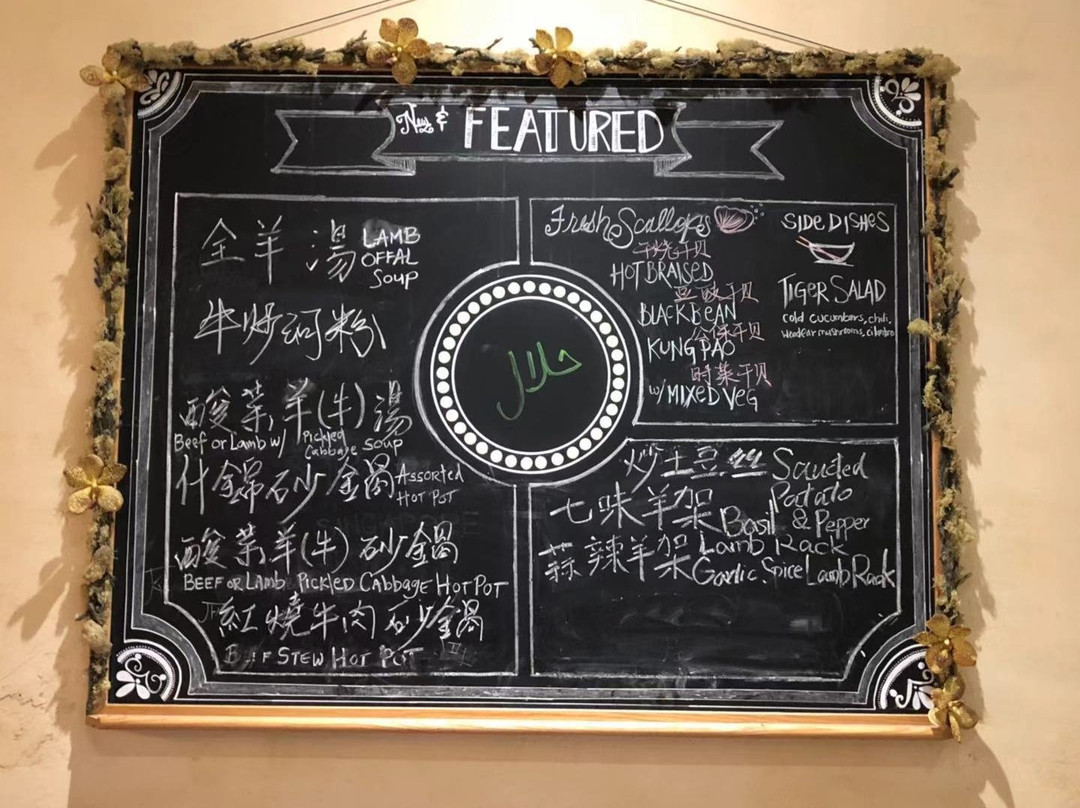 New & FEATURED
全羊湯 LAMB
OFFAL
SOUP
牛炒河粉
酸菜羊(牛)湯
Beef or Lamb w/ Pickled Cabbage Soup
什錦砂鍋 Assorted
Hot Pot
酸菜羊(牛)砂鍋
BEEF OR LAMB PICKLED CABBAGE HOT POT
紅燒牛肉砂鍋
BEEF STEW HOT POT
حلال
Fresh Scallops
干烧干贝
HOT BRAISED
豆豉干贝
BLACK BEAN
公保干贝
KUNG PAO
时菜干贝
w/ MIXED VEG
SIDE DISHES
TIGER SALAD
cold cucumbers, chili,
woodear mushrooms, cilantro
炒土豆丝 Sauteed
Potato
七味羊架 Basil & Pepper
Lamb Rack
蒜辣羊架 Garlic Spice Lamb Rack